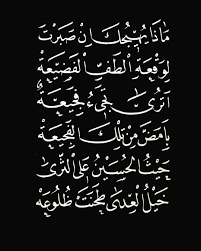 مَاذَا يُهِيجُكَ اِنْ صَبَرْتَ
لِوَقْعَةِ الْطَفِّ الْفَضِيعَةِ
اَتَرىٰ تَجِيءُ فَجِيعَةٌ
بِاَمَضَّ مِنْ تِلْكَ الْفَجِيعَةِ
حَيْثُ الحُسَيْنُ عَلَى الثَّرىٰ
خَيْلُ الْعِدىٰ طَحَنَتْ ضُلُوعَهْ